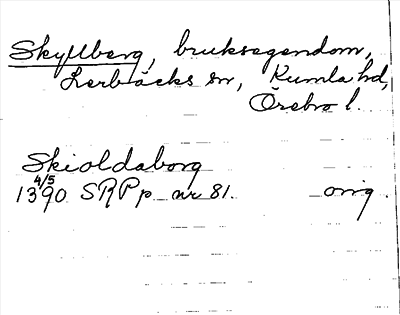 Skyllberg, bruksegendom,
Lerbäcks sn, Kumla hd,
Örebro l.
Skioldaborg
4/5
1390 SRPp nr 81. orig.